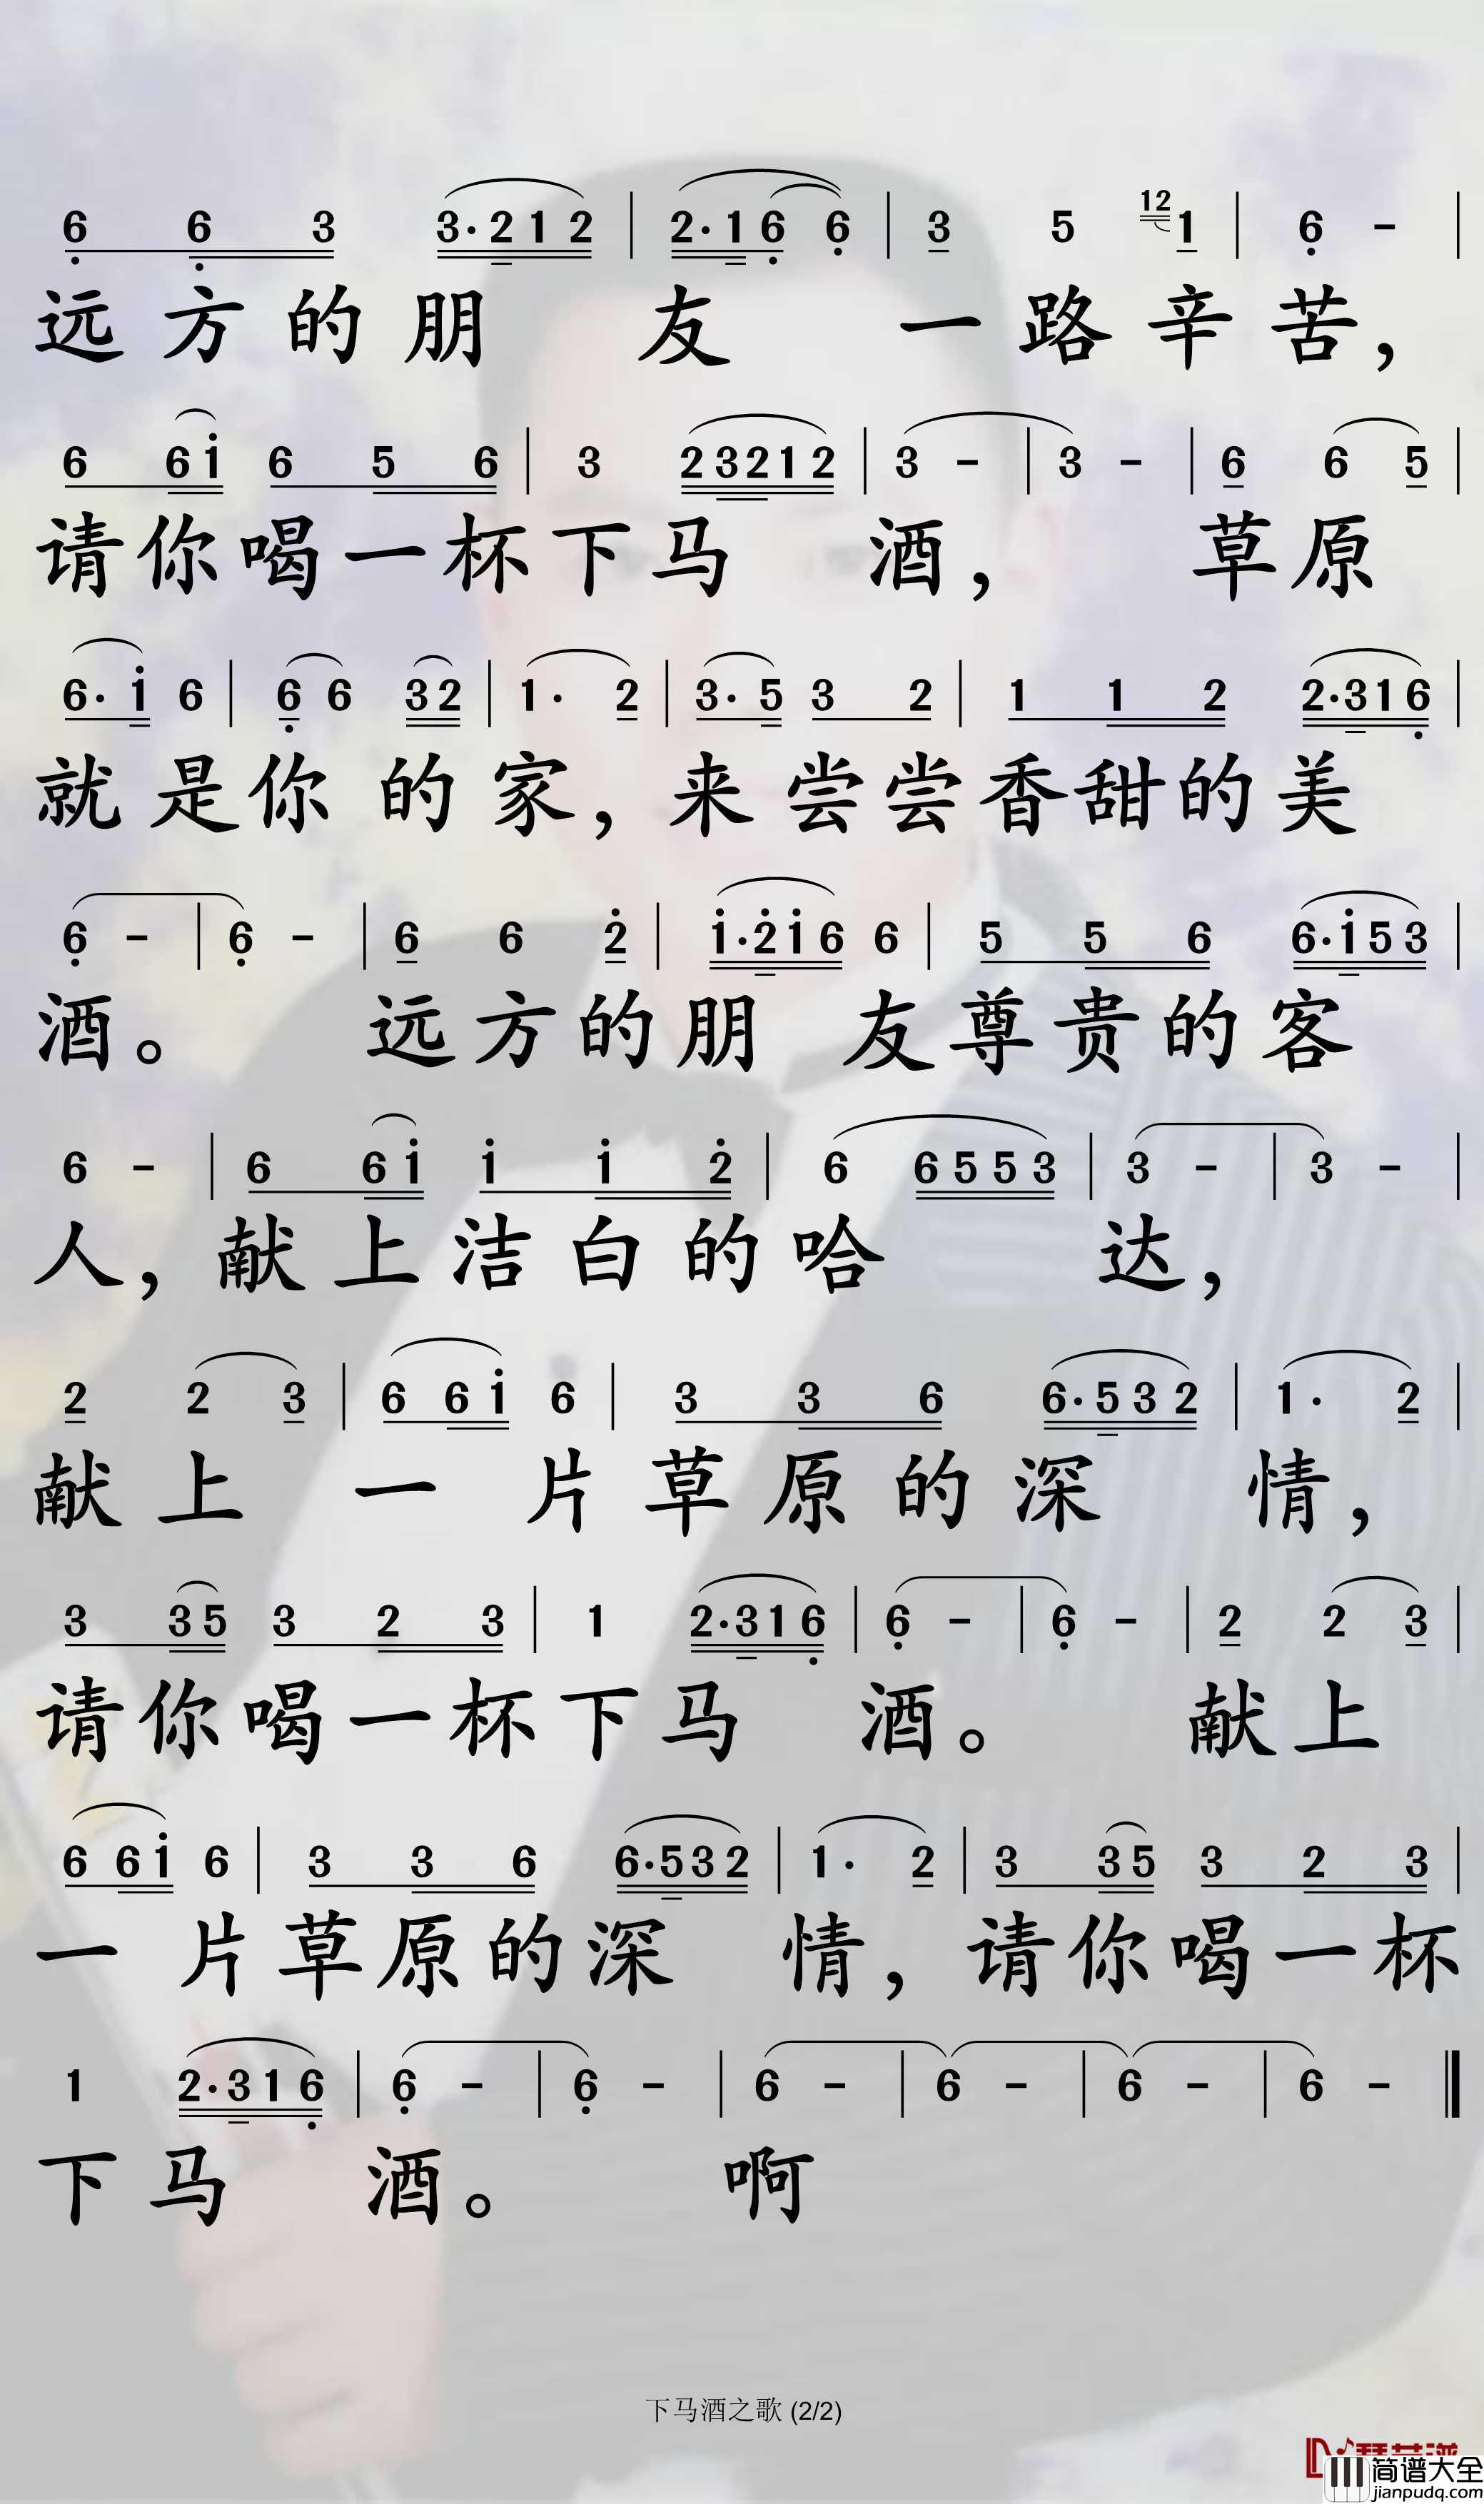 6 6 3 3·212 | 2·16 6 | 3 5 12 1 | 6 - |
远方的朋 友 一路辛苦，
6 61 6 5 6 | 3 23212 | 3 - | 3 - | 6 6 5 |
请你喝一杯下马 酒， 草原
6·1 6 | 6 6 32 | 1· 2 | 3·5 3 2 | 1 1 2 2·316 |
就是你 的家，来尝尝香甜的美
6 - | 6 - | 6 6 2 | 1·216 6 | 5 5 6 6·153 |
酒。 远方的朋 友尊贵的客
6 - | 6 61 1 1 2 | 6 6553 | 3 - | 3 - |
人，献上洁白的哈 达，
2 2 3 | 6 61 6 | 3 3 6 6·532 | 1· 2 |
献上 一 片草原的深 情，
3 35 3 2 3 | 1 2·316 | 6 - | 6 - | 2 2 3 |
请你喝一杯下马 酒。 献上
6 61 6 | 3 3 6 6·532 | 1· 2 | 3 35 3 2 3 |
一 片草原的深 情，请你喝一杯
1 2·316 | 6 - | 6 - | 6 - | 6 - | 6 - | 6 - ‖
下马 酒。 啊
下马酒之歌 (2/2)
简谱大全
jianpudq.com